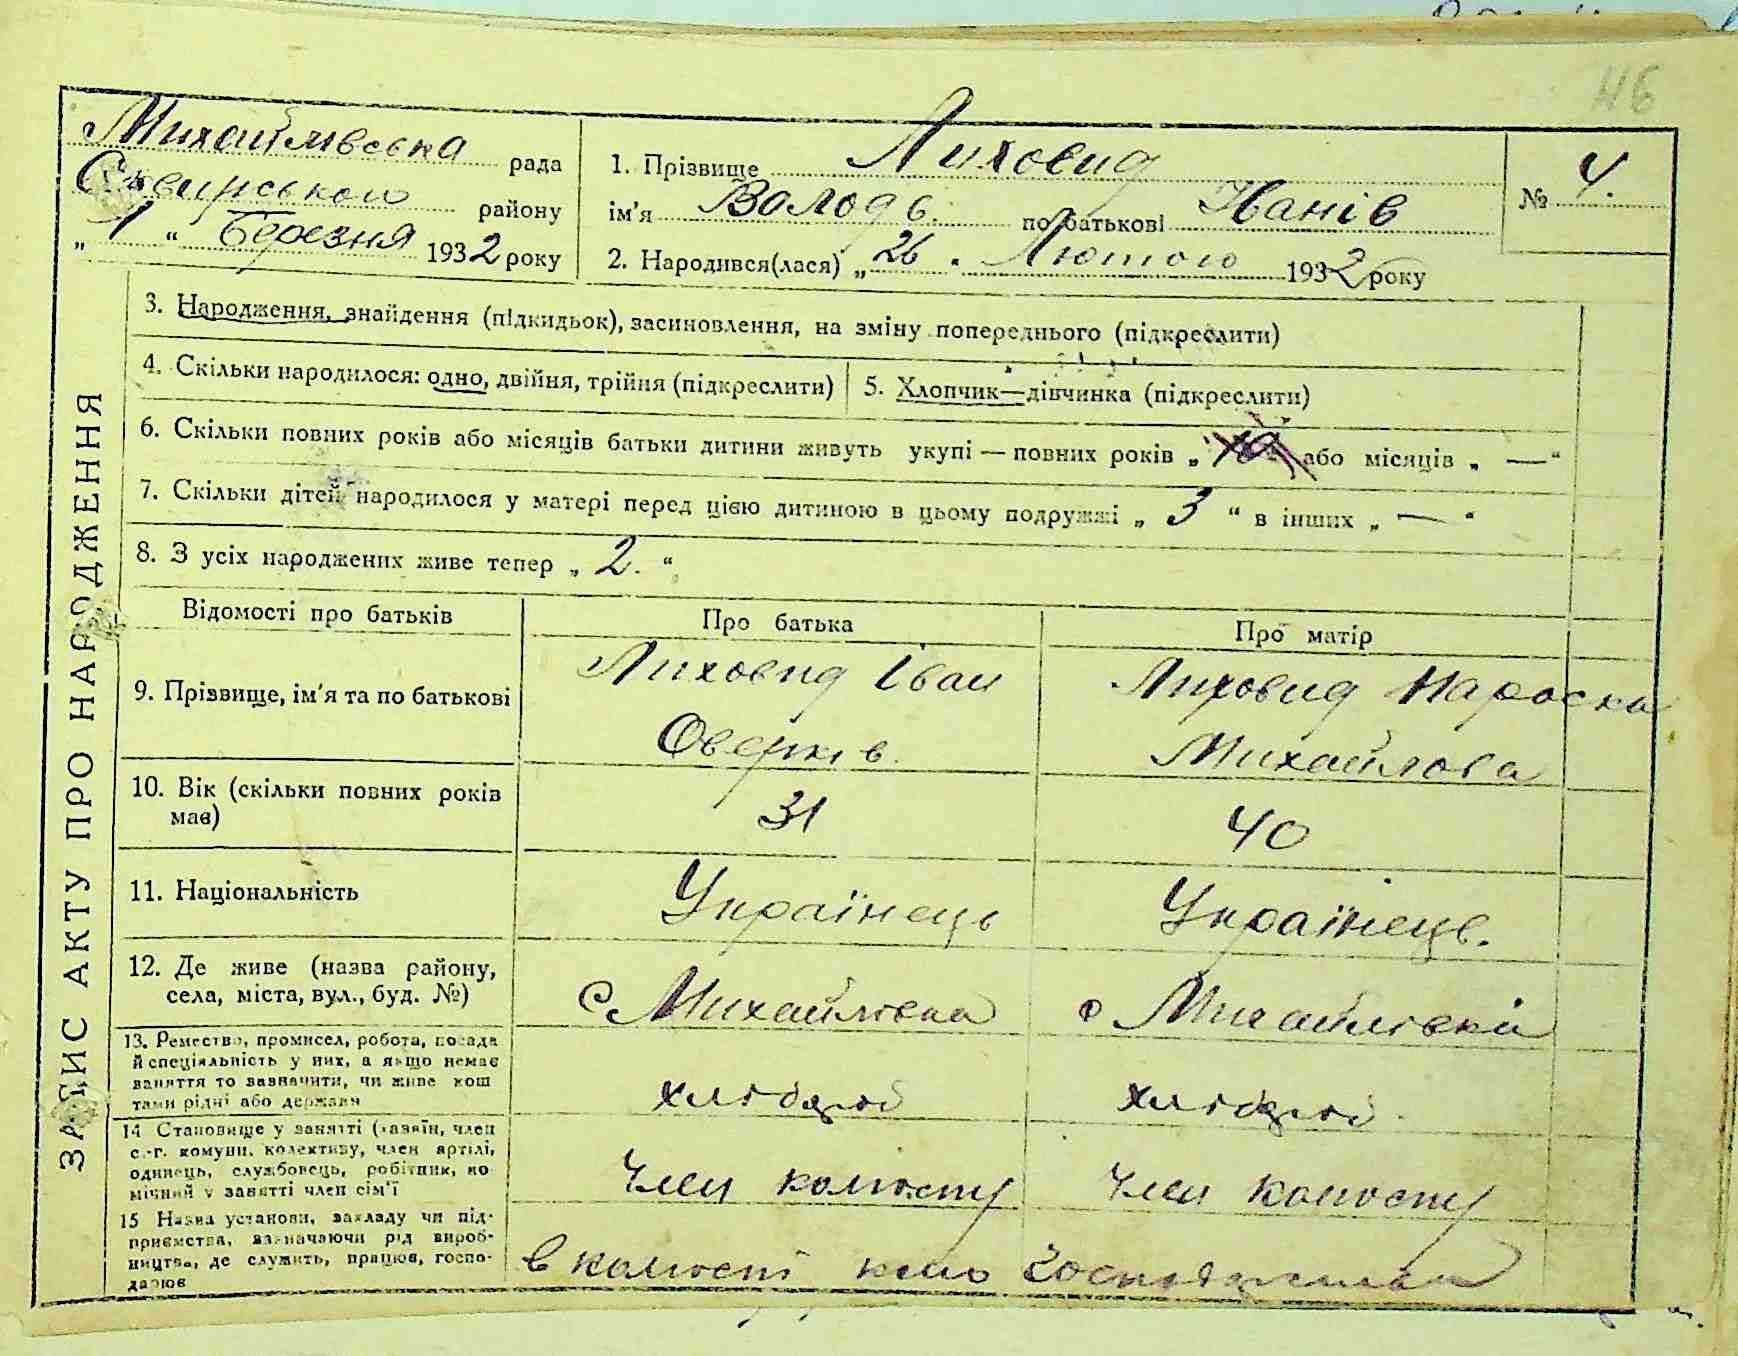 46
Михайлівська рада
Сквирського району
„ 1 “ Березня 1932 року
1. Прізвище Лиховид
ім'я Володь. по батькові Іванів
2. Народився(лася) „ 26 . Лютого 1932 року
№ 4.
ЗАПИС АКТУ ПРО НАРОДЖЕННЯ
3. Народження, знайдення (підкидьок), засиновлення, на зміну попереднього (підкреслити)
4. Скільки народилося: одно, двійня, трійня (підкреслити)
5. Хлопчик—дівчинка (підкреслити)
6. Скільки повних років або місяців батьки дитини живуть укупі — повних років „ або місяців „ — “
7. Скільки дітей народилося у матері перед цією дитиною в цьому подружжі „ 3 “ в інших „ — “
8. З усіх народжених живе тепер „ 2. “
Відомості про батьків
Про батька
Про матір
9. Прізвище, ім'я та по батькові
Лиховид Іван
Оверків.
Лиховид
Михайлова
10. Вік (скільки повних років
має)
31
40
11. Національність
Українець
Українець.
12. Де живе (назва району,
села, міста, вул., буд. №)
С Михайлівка
с Михайлівка
13. Ремество, промисел, робота, посада
й спеціяльність у них, а якщо немає
заняття то зазначити, чи живе кош
тами рідні або держави
хлібороб
хлібороб.
14 Становище у занятті (хазяїн, член
с.-г. комуни, колективу, член артілі,
одинець, службовець, робітник, по
мічний у занятті член сім'ї
Член колгоспу
Член колгоспу
15 Назва установи, закладу чи під-
приємства, зазначаючи рід вироб-
ництва, де служить, працює, госпо-
дарює
в колгоспі